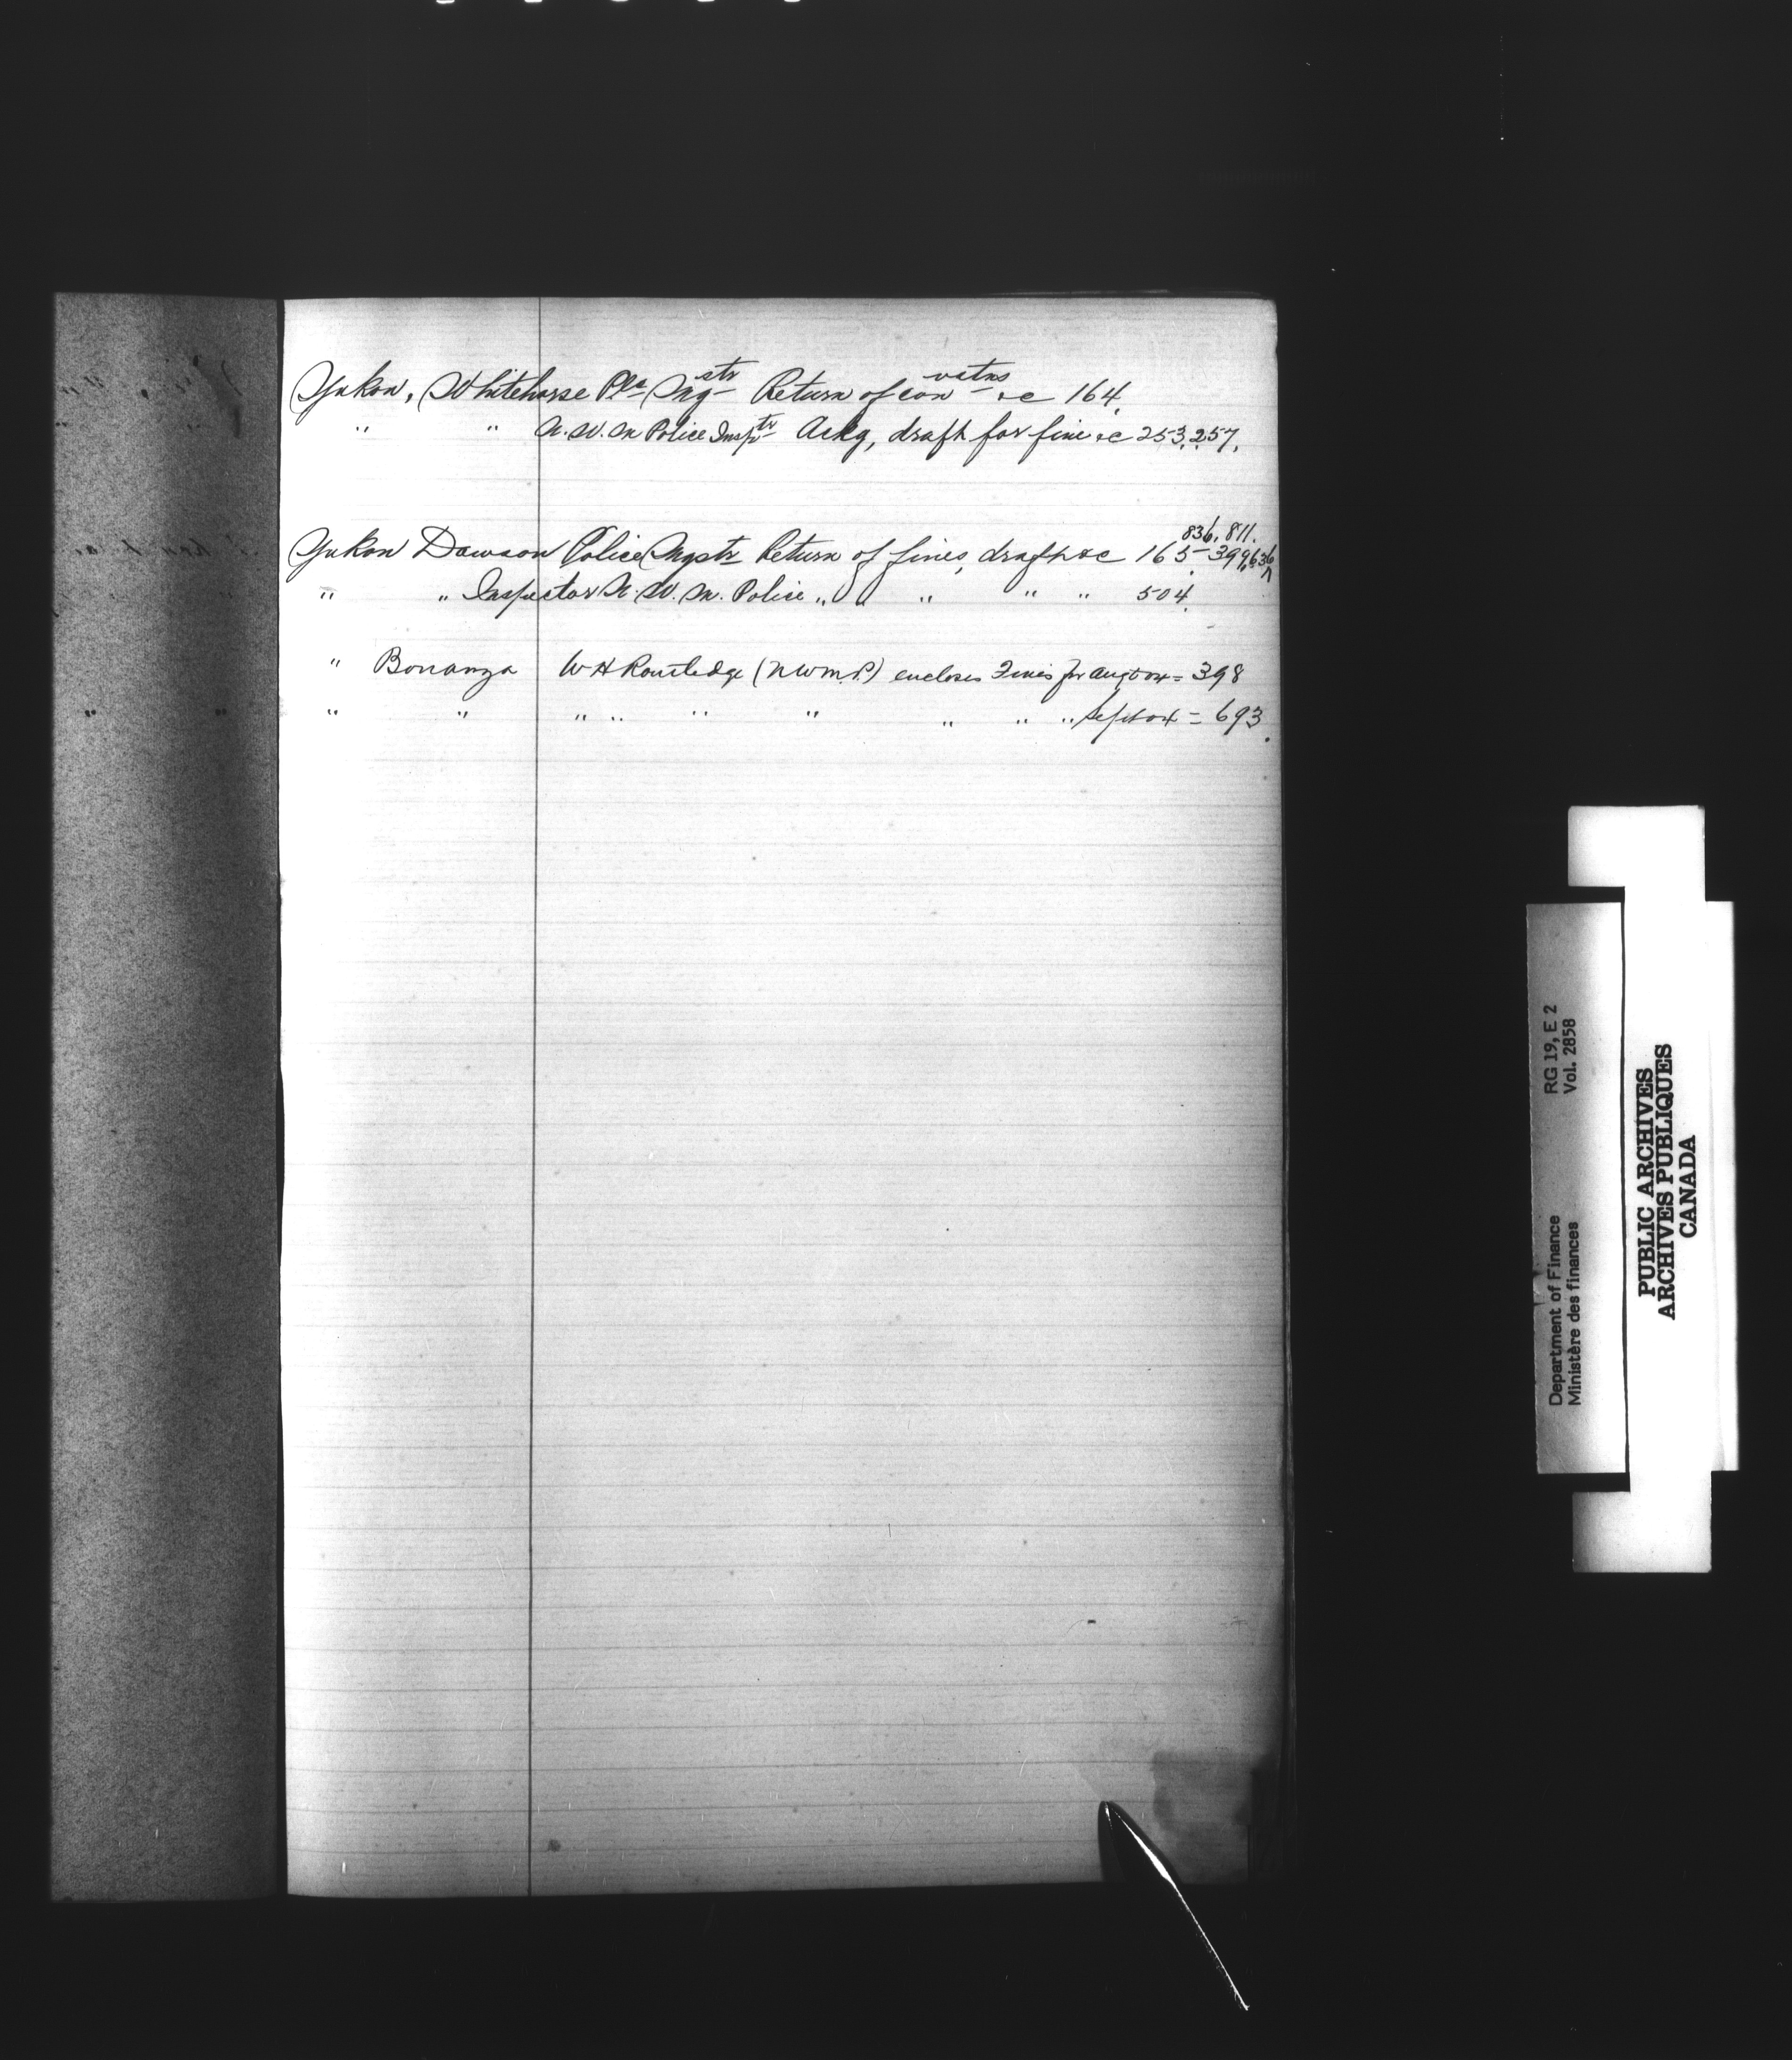 Yukon, Whitehorse Ple Mgstr Return of convctns &c 164.
" " N. W. M Police Insptr Ackg, draft for fine &c 253. 257.
836. 811.
Yukon Dawson Police Mgstr Return of fines, draft &c 165-399, 636
" " Inspector N. W. M. Police " " " " " 504.
" Bonanza W H Routledge (NWM.P.) encloses Fines for Augt 04 = 398
" " " " " " " " " Sept 04 = 693.
RG 19, E 2
Vol. 2858
Department of Finance
Ministère des finances
PUBLIC ARCHIVES
ARCHIVES PUBLIQUES
CANADA